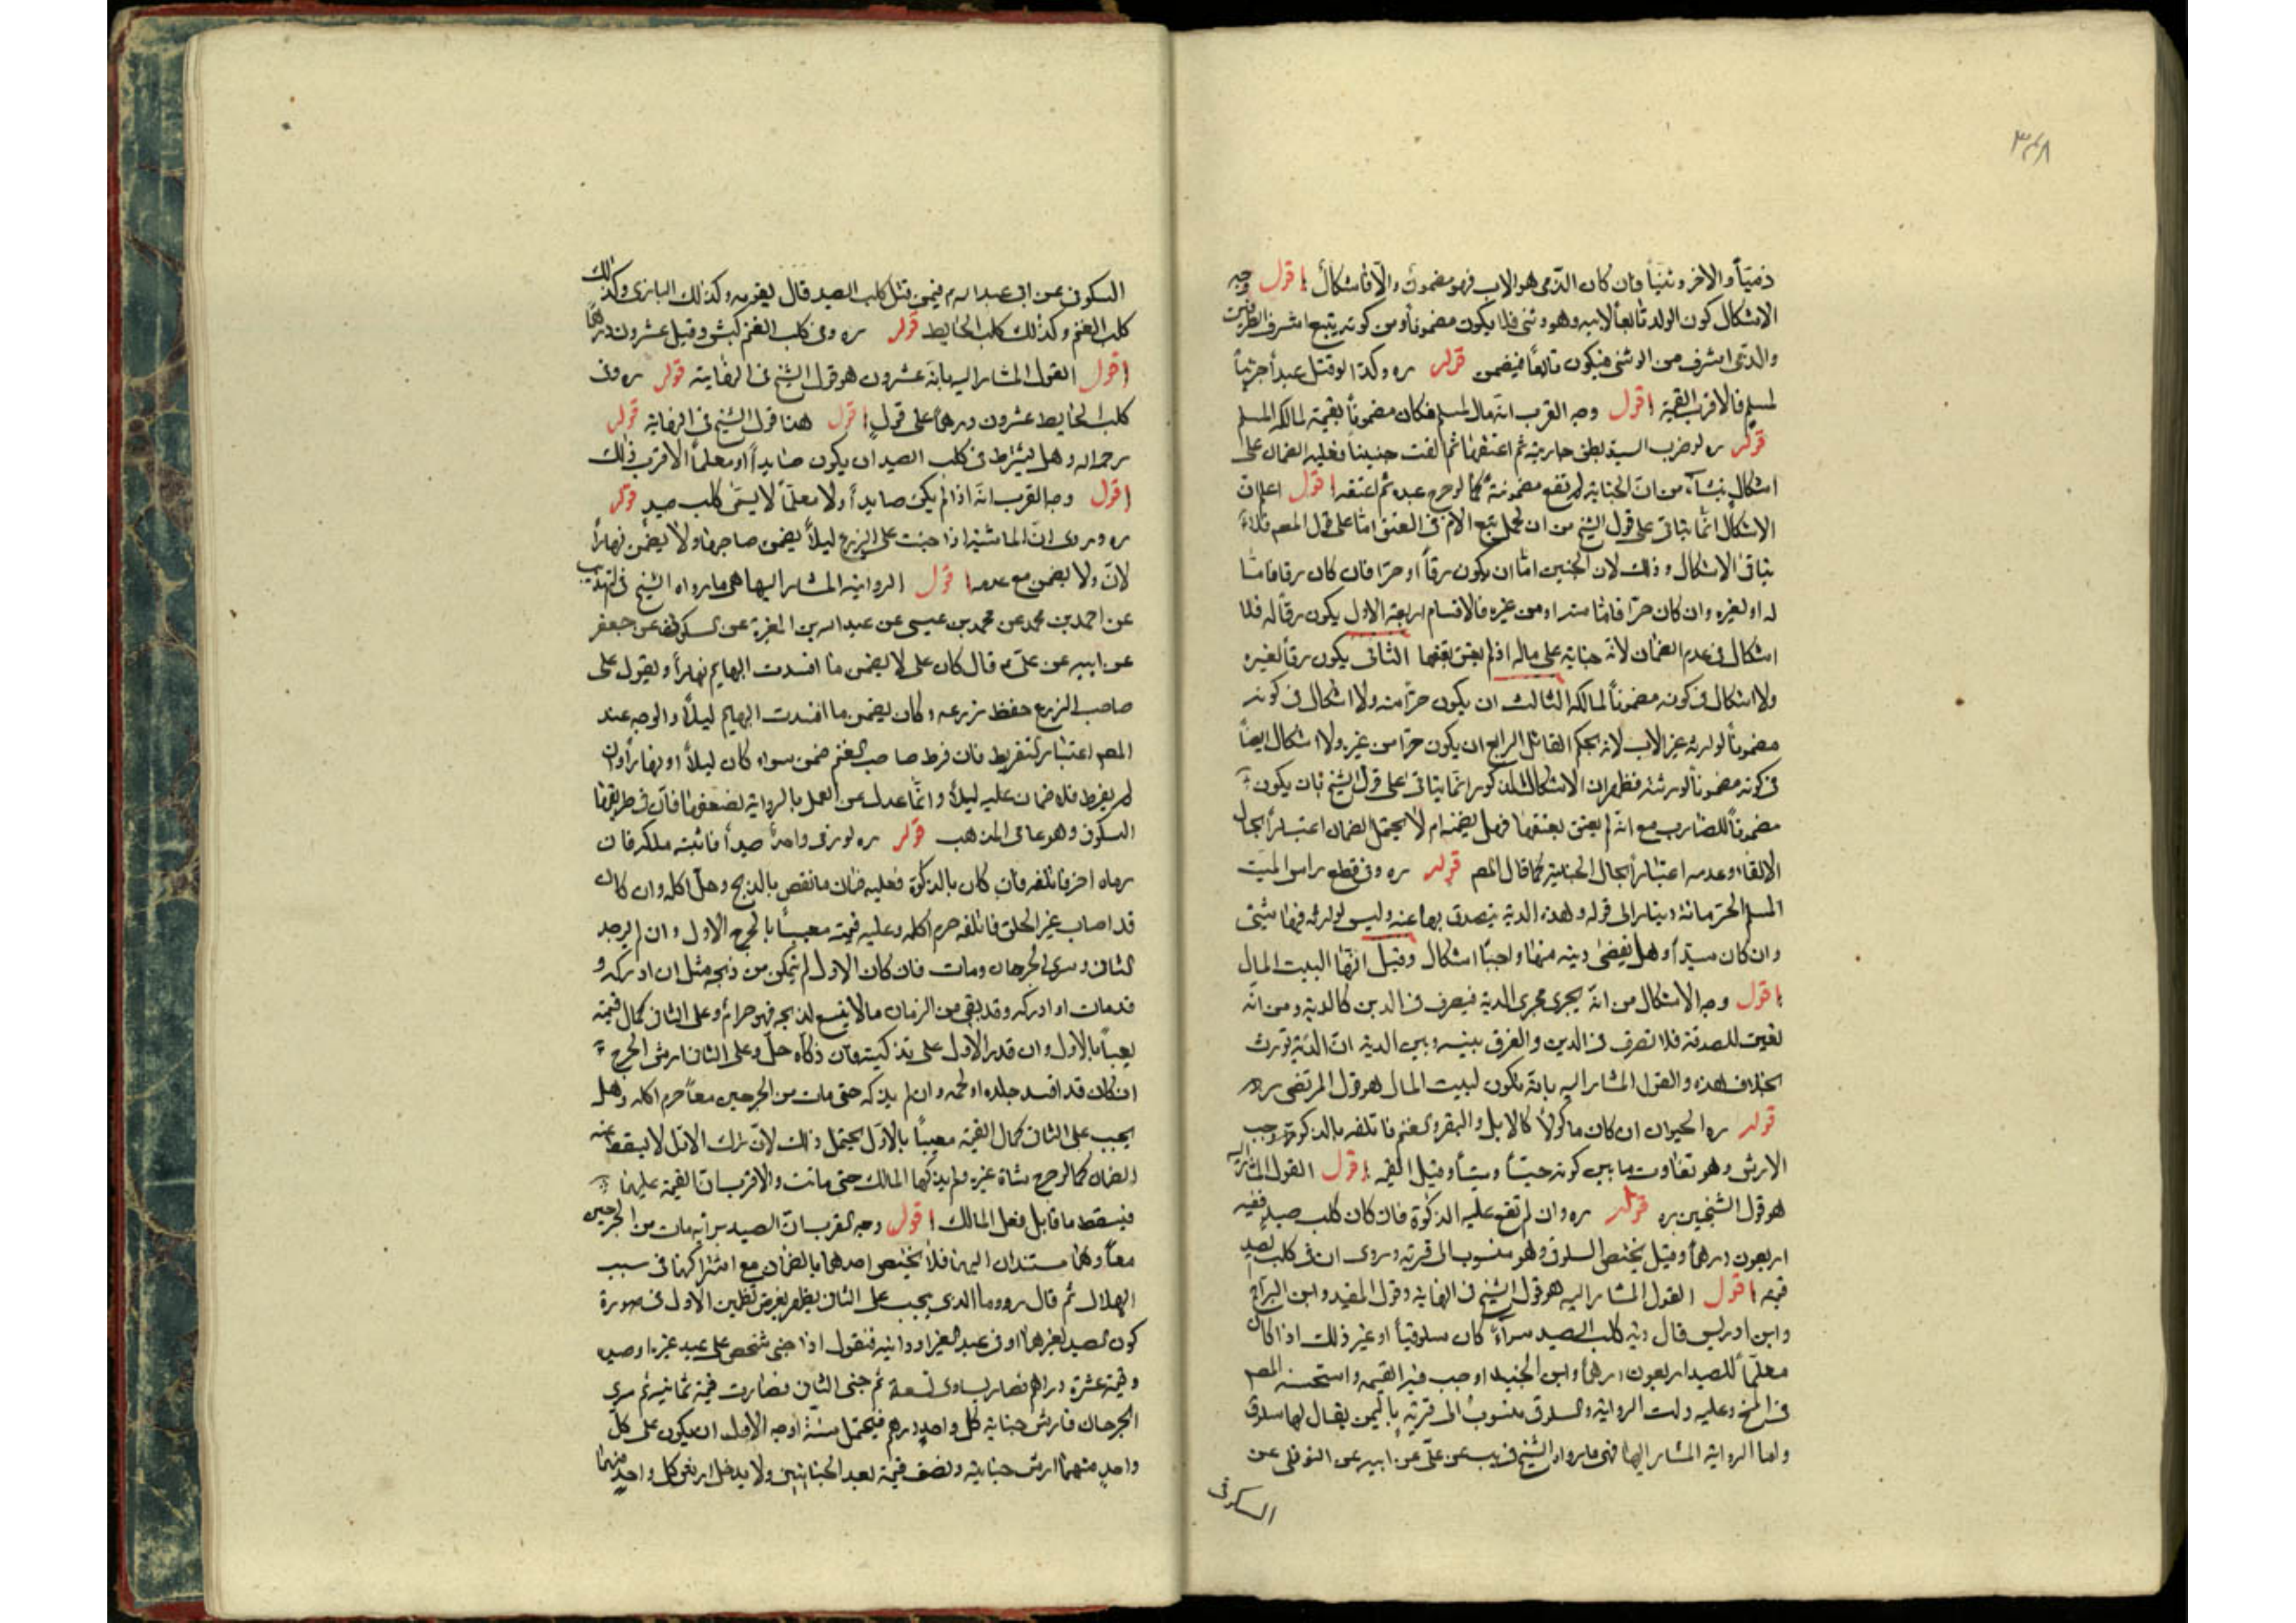 ٣٤٨
ذميّاً والاخر وثنيّاً فان كان الذّمى هو الاب فهو مضمون والّا فاشكال اقول وجه
الاشكال كون الولد تابعاً لابيه وهو وثنى فلا يكون مضموناً ومن كونه يتبع اشرف الطرفين
والذمّى اشرف من الوثنى فيكون تابعاً فيضمن قوله ره وكذا لو قتل عبداً حربيّاً
لمسلم فالاقرب القيمة اقول وجه القرب انّه مال لمسلم فكان مضموناً بقيمته لمالكه المسلم
قوله ره لو ضرب السيد بطن جاريته ثم اعتقها ثم القت جنيناً فعليه الضمان على
اشكال ينشأ من انّ الجناية لم تقع مضمونة كما لو جرح عبده ثم اعتقه اقول اعلم انّ
الاشكال انّما يتاتّى على قول الشيخ من ان الحمل يتبع الام فى العتق امّا على قول المصم فلا
يتاتى الاشكال وذلك لان الجنين امّا ان يكون رقّاً او حرّا فان كان رقا فامّا
له او لغيره وان كان حرّا فامّا منه او من غيره فالاقسام اربعة الاول يكون رقّاً له فلا
اشكال فى عدم الضمان لانّه جناية على ماله اذ لم يعتق بعتقها الثانى يكون رقاً لغيره
ولا اشكال فى كونه مضموناً لمالكه الثالث ان يكون حرّاً منه ولا اشكال فى كونه
مضموناً لوارثه غير الاب لانه بحكم القاتل الرابع ان يكون حرّا من غيره ولا اشكال ايضاً
فى كونه مضموناً لورثته فظهر ان الاشكال المذكور انّما يتاتى على قول الشيخ بان يكون
مضموناً للضارب مع انّه لم يعتق بعتقها فهل يضمنه ام لا يحتمل الضمان اعتباراً بحال
الالقاء وعدمه اعتباراً بحال الجناية كما قال المصم قوله ره وفى قطع راس الميّت
المسلم الحرّ مائة دينار الى قوله وهذه الدية يتصدق بها عنه وليس لوارثه فيها شئ
وان كان سيّداً وهل يقضى دينه منها واجبا اشكال وقيل انّها لبيت المال
اقول وجه الاشكال من انّه يجرى مجرى الدية فيصرف فى الدين كالدية ومن انّه
تعيّن للصدقة فلا تصرف فى الدين والفرق بينه وبين الدية انّ الدّية تورث
بخلاف هذه والقول المشار اليه بانّه يكون لبيت المال هو قول المرتضى ره
قوله ره الحيوان ان كان ماكولاً كالابل والبقر والغنم فاتلفه بالذكوة وجب
الارش وهو تفاوت ما بين كونه حيّاً وميتاً وقيل القيمة اقول القول المشار اليه
هو قول الشيخين ره قوله ره وان لم تقع عليه الذكوة فان كان كلب صيد ففيه
اربعون درهماً وقيل يختصّ السلوقى وهو منسوب الى قرية وروى ان فى كلب الصيد
قيمته اقول القول المشار اليه هو قول الشيخ فى النهاية وقول المفيد وابن البرّاج
وابن ادريس قال دية كلب الصيد سواء كان سلوقيّاً او غير ذلك اذا كان
معلّماً للصيد اربعون درهماً وابن الجنيد اوجب فيه القيمة واستحسنه المصم
وعليه دلت الرواية والسلوقى منسوب الى قرية باليمن يقال لها سلوق
وامّا الرواية المشار اليها فهى ما رواه الشيخ فى يب عن علىّ عن ابيه عن النوفلى عن
السكونى
السكونى عن ابى عبد الله م فيمن قتل كلب الصيد قال يقومه وكذلك البازى وكذلك
كلب الغنم وكذلك كلب الحايط قوله ره وفى كلب الغنم كبش وقيل عشرون درهماً
اقول القول المشار اليه بانّه عشرون هو قول الشيخ فى النهاية قوله ره وفى
كلب الحايط عشرون درهماً على قول اقول هذا قول الشيخ فى النهاية قوله
رحمه الله وهل يشترط فى كلب الصيد ان يكون صايداً او معلّماً الاقرب ذلك
اقول وجه القرب انّه اذا لم يكن صايداً ولا معلّماً لا يسمّى كلب صيد قوله
ره وروى انّ الماشية اذا جنت على الزرع ليلاً يضمن صاحبها ولا يضمن نهاراً
لانّ ولا يضمن مع عدمه اقول الرواية المشار اليها هى ما رواه الشيخ فى التهذيب
عن احمد بن محمد عن محمد بن عيسى عن عبد الله بن المغيرة عن السكونى عن جعفر
عن ابيه عن علىّ م قال كان على لا يضمن ما افسدت البهايم نهاراً ويقول على
صاحب الزرع حفظ زرعه وكان يضمن ما افسدت البهايم ليلاً والوجه عند
المصم اعتبار التفريط فان فرط صاحب الغنم ضمن سواء كان ليلاً او نهاراً وان
لم يفرط فلا ضمان عليه ليلاً وانّما عدل عن العمل بالرواية لضعفها فانّ فى طريقها
السكونى وهو عامى المذهب قوله ره لو رمى واحد صيداً فاثبته ملكه فان
رماه اخر فاتلفه فان كان بالذكوة فعليه ضمان ما نقص بالذبح وحلّ اكله وان كان
قد اصاب غير الحلق فاتلفه حرم اكله وعليه قيمته معيباً بالجرح الاول وان لم يوجد
الثانى وسرى الجرحان ومات فان كان الاول لم يتمكن من ذبحه مثل ان ادركه و
قد مات او ادركه وقد بقى من الزمان ما لا يتسع لذبحه فهو حرام وعلى الثانى كمال قيمته
معيباً بالاول وان قدر الاول على تذكيته فان ذكّاه حلّ وعلى الثانى ارش الجرح
ان كان قد افسد جلده او لحمه وان لم يذكه حتى مات من الجرحين معاً حرم اكله وهل
يجب على الثانى كمال القيمة معيباً بالاوّل يحتمل ذلك لانّ ترك الاول لا يسقط عنه
الضمان كما لو جرح شاة غيره ولم يذكها المالك حتى ماتت والاقرب انّ القيمة عليهما
فيسقط ما قابل فعل المالك اقول وجه القرب انّ الصيد سراية مات من الجرحين
معاً وهما مستندان اليهما فلا يختص احدهما بالضمان مع اشتراكهما فى سبب
الهلاك ثم قال ره وما الذى يجب على الثانى يظهر بفرض لفظين الاول فى صورة
كون الصيد لغيرهما او فى عبد الغير او دابته فنقول اذا جنى شخص على عبد غيره او صيد
وقيمته عشرة دراهم فصار يساوى تسعة ثم جنى الثانى فصارت قيمته ثمانية ثم سرى
الجرحان فارش جناية كل واحد درهم فيحتمل ستة اوجه الاول ان يكون على كل
واحد منهما ارش جنايته ونصف قيمته بعد الجنايتين ولا يدخل ارش كل واحد منهما